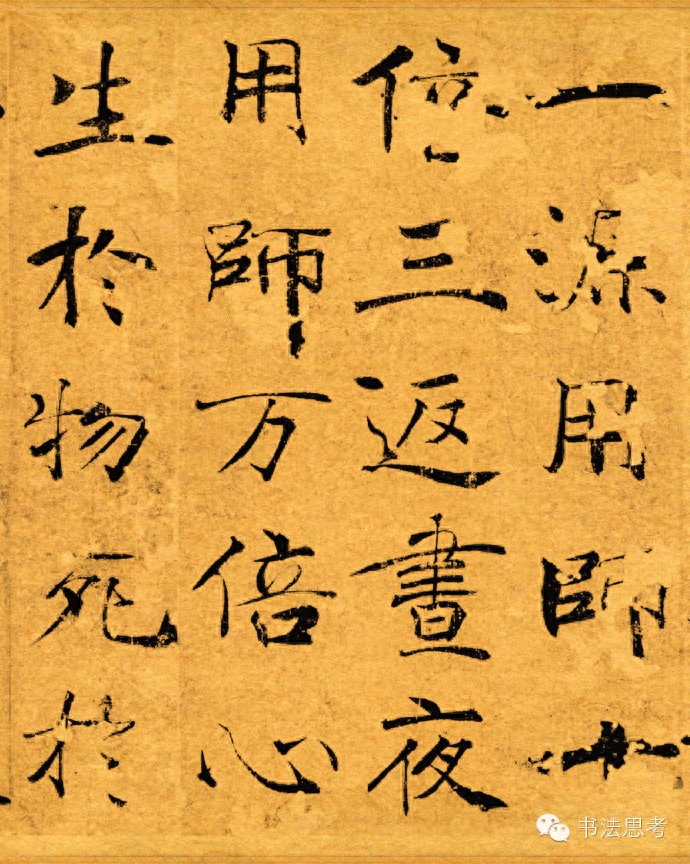 一源用師十
倍三返晝夜
用師万倍心
生於物死於
书法思考